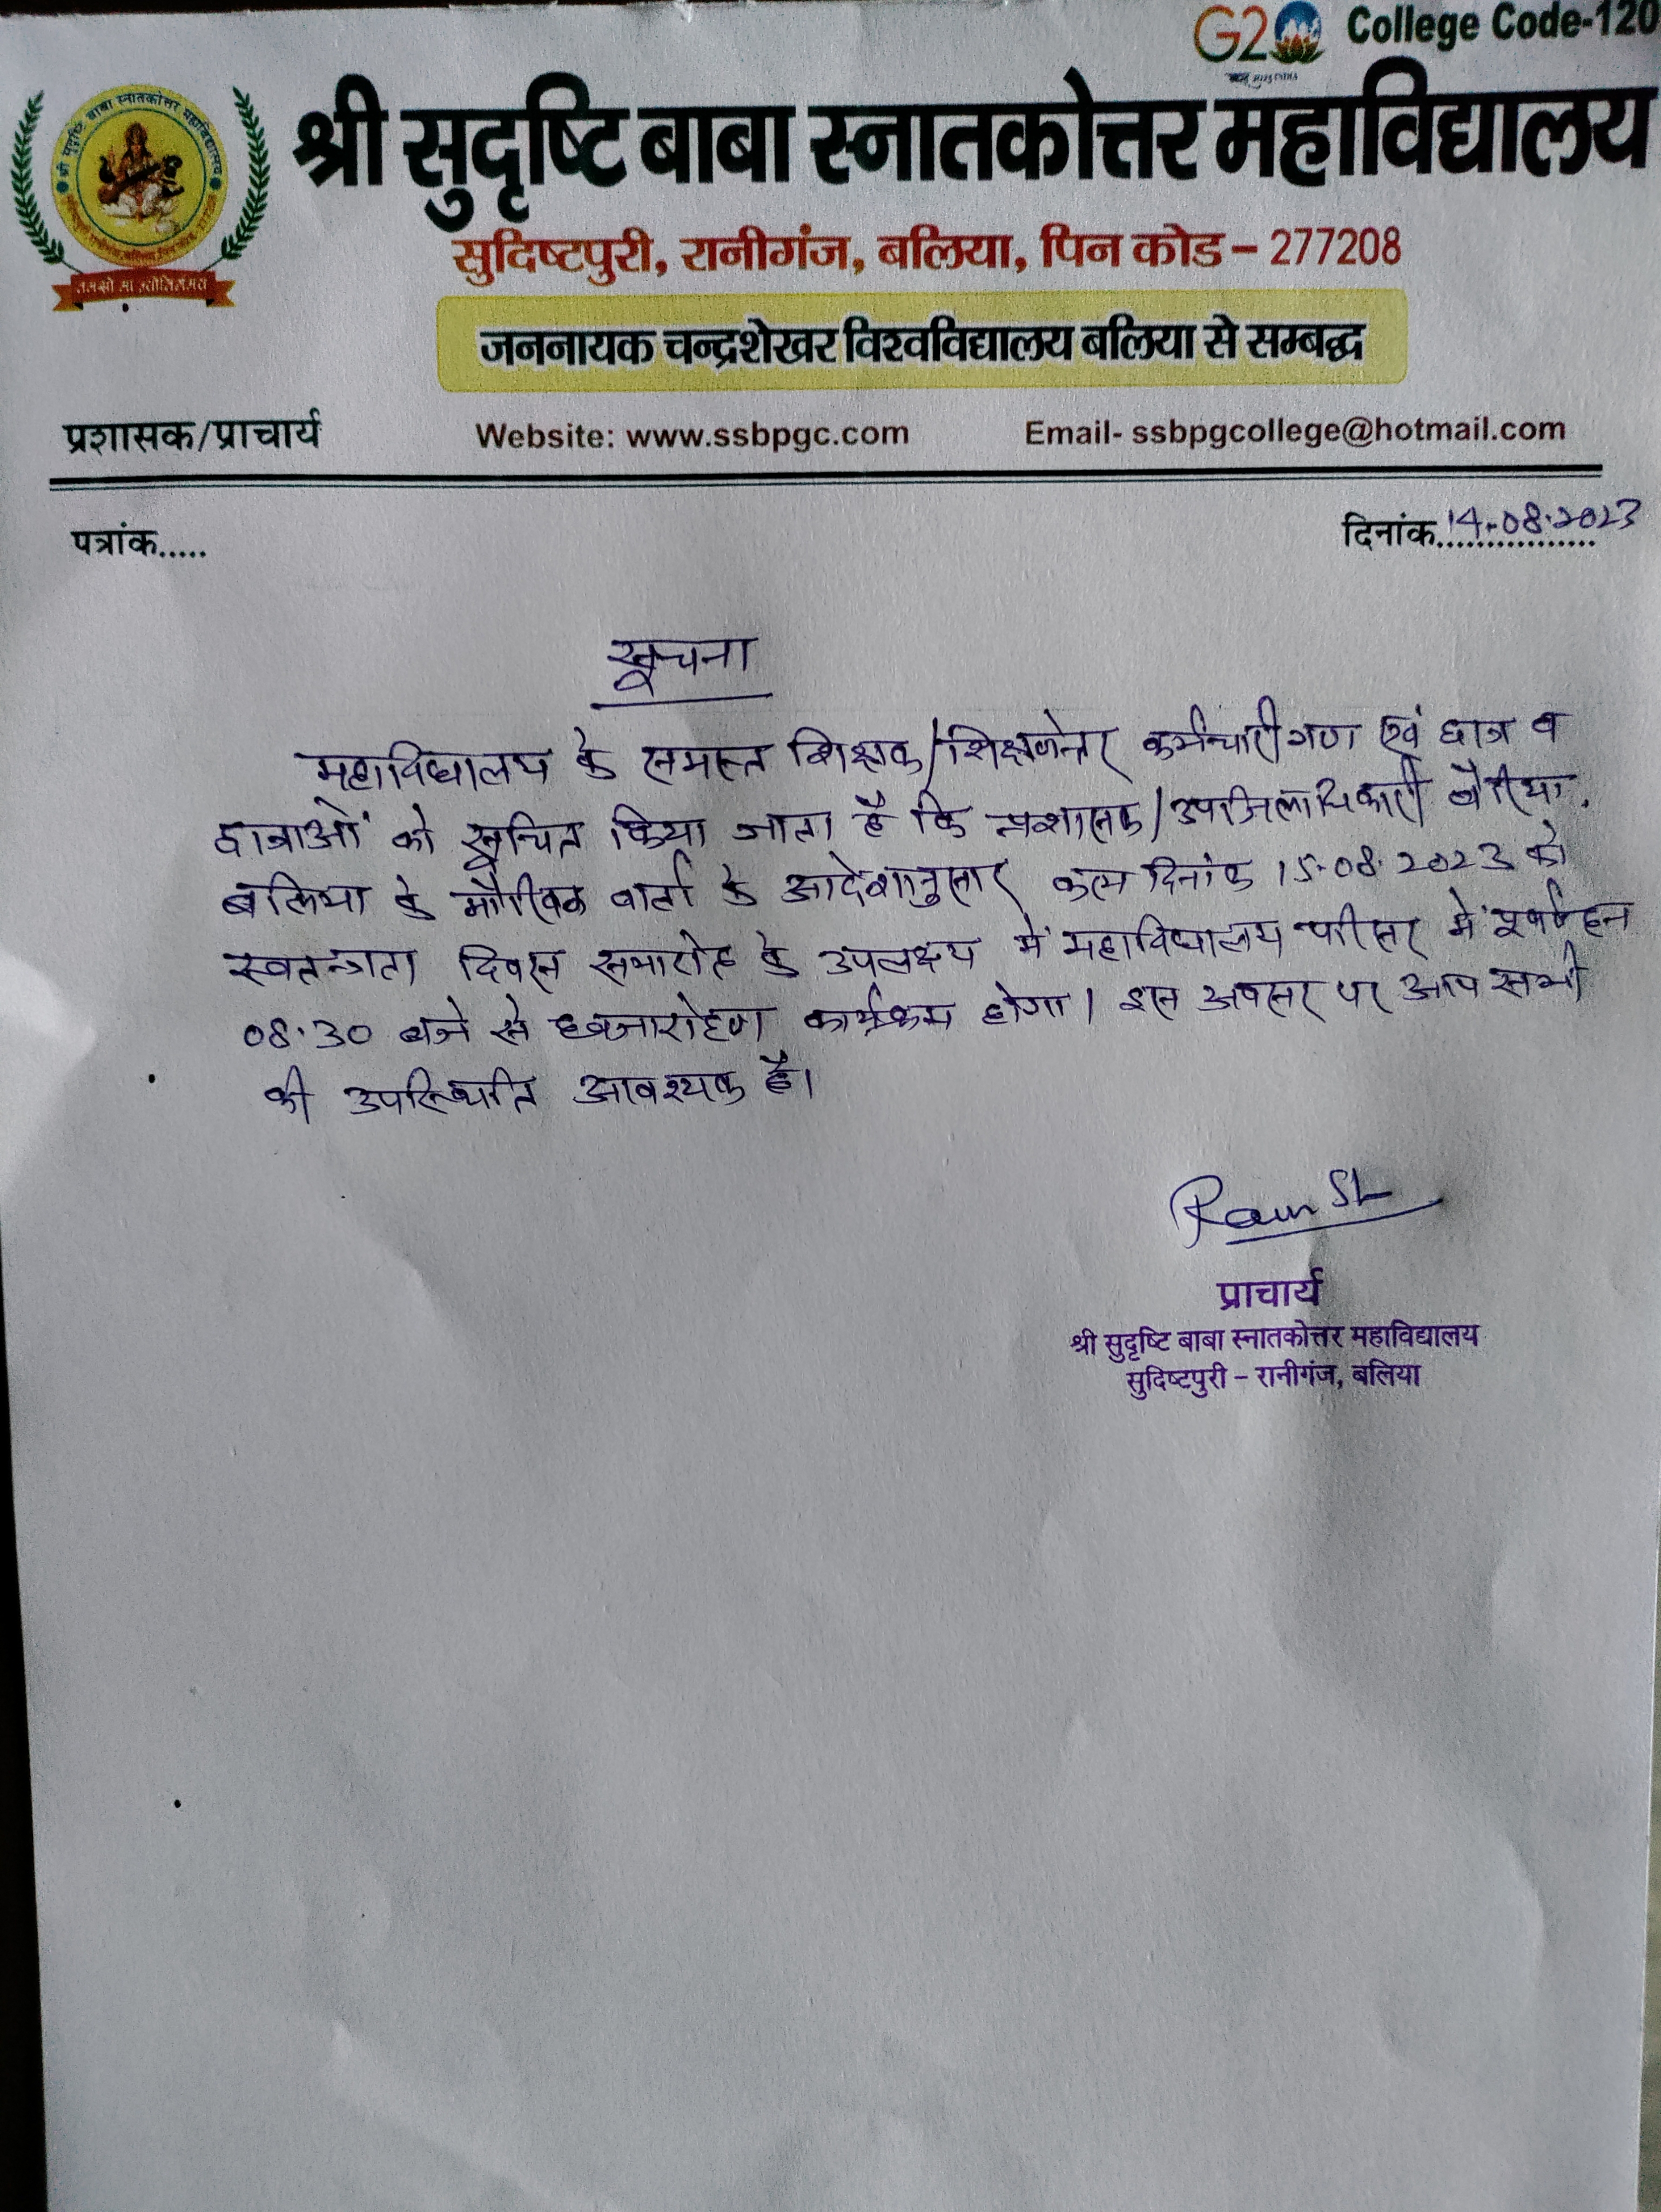 G20 College Code-120
श्री सुदृष्टि बाबा स्नातकोत्तर महाविद्यालय
सुदिष्टपुरी, रानीगंज, बलिया, पिन कोड – 277208
तमसो मा ज्योतिर्गमय
जननायक चन्द्रशेखर विश्वविद्यालय बलिया से सम्बद्ध
प्रशासक/प्राचार्य Website: www.ssbpgc.com Email- ssbpgcollege@hotmail.com
पत्रांक..... दिनांक 14.08.2023
सूचना
महाविद्यालय के समस्त शिक्षक/शिक्षणेत्तर कर्मचारीगण एवं छात्र व
छात्राओं को सूचित किया जाता है कि प्रशासक/उपजिलाधिकारी बैरिया,
बलिया के मौखिक वार्ता के आदेशानुसार कल दिनांक 15.08.2023 को
स्वतन्त्रता दिवस समारोह के उपलक्ष्य में महाविद्यालय परिसर में पूर्वाहन
08:30 बजे से ध्वजारोहण कार्यक्रम होगा। इस अवसर पर आप सभी
की उपस्थिति आवश्यक है।
प्राचार्य
श्री सुदृष्टि बाबा स्नातकोत्तर महाविद्यालय
सुदिष्टपुरी – रानीगंज, बलिया